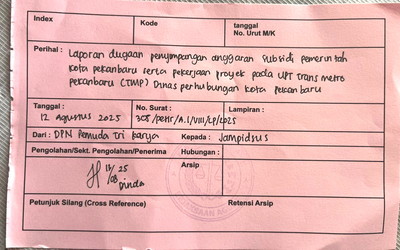 Index
Kode
tanggal
No. Urut M/K
Perihal :
Laporan dugaan penyimpangan anggaran subsidi pemerintah
kota pekanbaru serta pekerjaan proyek pada UPT Trans metro
pekanbaru (TMP) Dinas perhubungan kota pekanbaru
Tanggal :
No. Surat :
Lampiran :
12 Agustus 2025
Dari : DPN Pemuda Tri karya
Kepada : Jampidsus
Pengolahan/Sekt. Pengolahan/Penerima
Hubungan :
Arsip
Dinda
Petunjuk Silang (Cross Reference)
Retensi Arsip